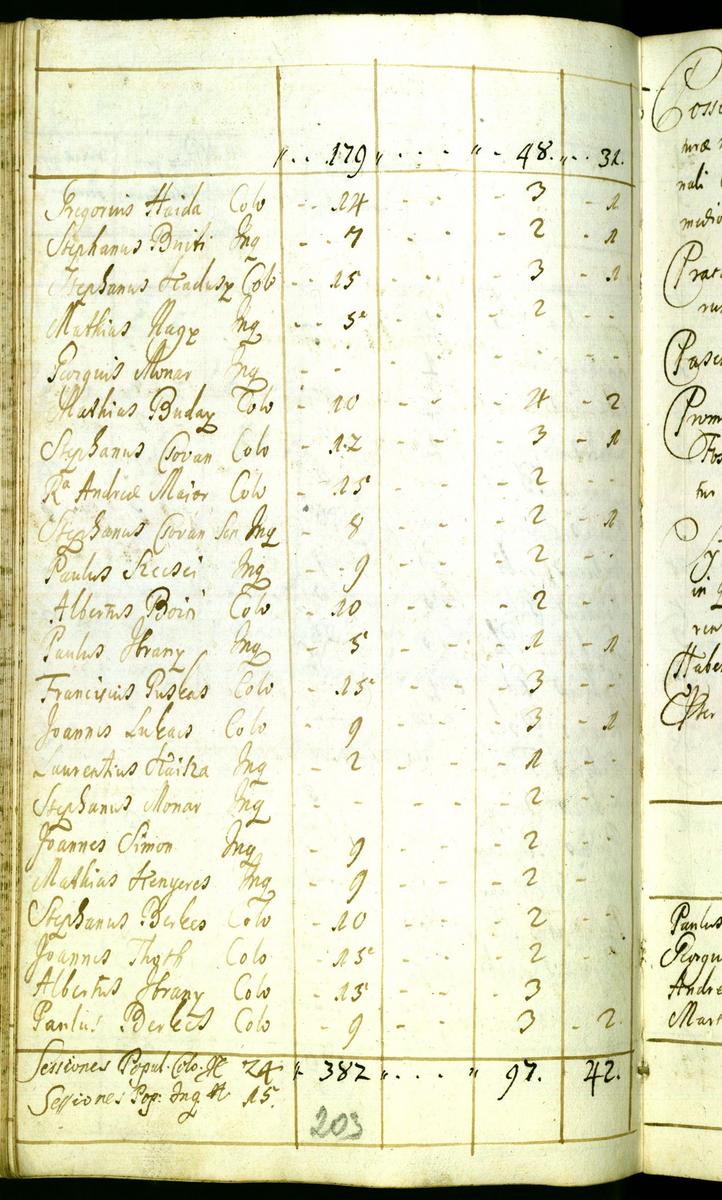 " - - 179 " - - - " - 48. " - 31.
Gregorius Haida Colo - - 14 - - - 3 - 1
Stephanus Buiti Inq - - 7 - - - 2 - 1
Stephanus Hadusy Colo - - 15 - - - 3 - 1
Mathias Nagy Inq - - 5 - - - 2 - -
Georgius Monar Inq - - - - - - - -
Mathias Buday Colo - 10 - - - 4 - 2
Stephanus Csovan Colo - 12 - - - 3 - 1
Ra Andreæ Maior Colo - 15 - - - 2 - -
Stephanus Csovan Sen Inq - 8 - - - 2 - 1
Paulus Szecsei Inq - 9 - - - 2 - -
Albertus Boiri Colo - 10 - - - 2 - -
Paulus Ibrany Inq - 5 - - - 1 - 1
Franciscus Puskas Colo - 15 - - - 3 - -
Joannes Lukacs Colo - 9 - - - 3 - 1
Laurentius Haiza Inq - 2 - - - 1 - -
Stephanus Monar Inq - - - - - 2 - -
Joannes Simon Inq - 9 - - - 2 - -
Mathias Henyeres Inq - 9 - - - 2 - -
Stephanus Berkes Colo - 10 - - - 2 - -
Joannes Thoth Colo - 15 - - - 2 - -
Albertus Ibrany Colo - 15 - - - 3
Paulus Berkes Colo - 9 - - - 3 - 2
Sessiones Popul. Colo. 24 " 382 " - - - " 97. 42.
Sessiones Pop: Inq 15.
203
Paulus
Georgi
Andre
Mart